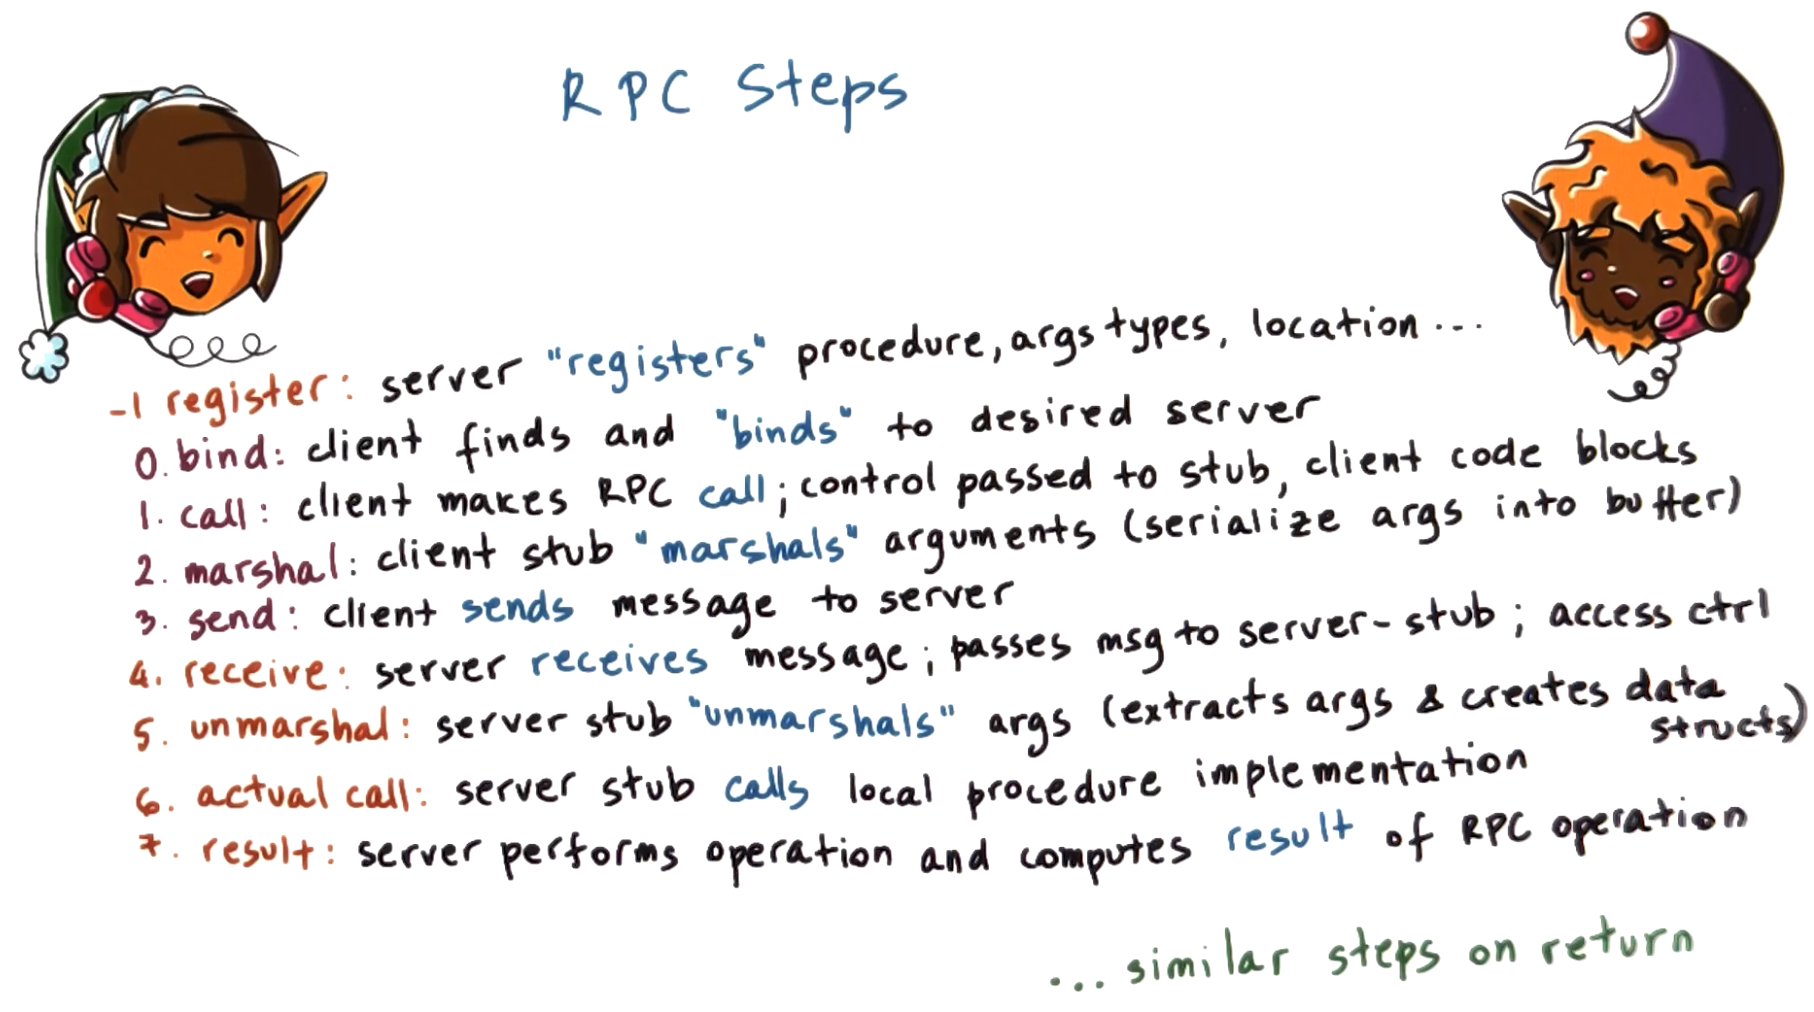 RPC Steps
-1 register: server "registers" procedure, args types, location ...
0. bind: client finds and "binds" to desired server
1. call: client makes RPC call; control passed to stub, client code blocks
2. marshal: client stub "marshals" arguments (serialize args into buffer)
3. send: client sends message to server
4. receive: server receives message; passes msg to server-stub; access ctrl
5. unmarshal: server stub "unmarshals" args (extracts args & creates data
structs)
6. actual call: server stub calls local procedure implementation
7. result: server performs operation and computes result of RPC operation
... similar steps on return